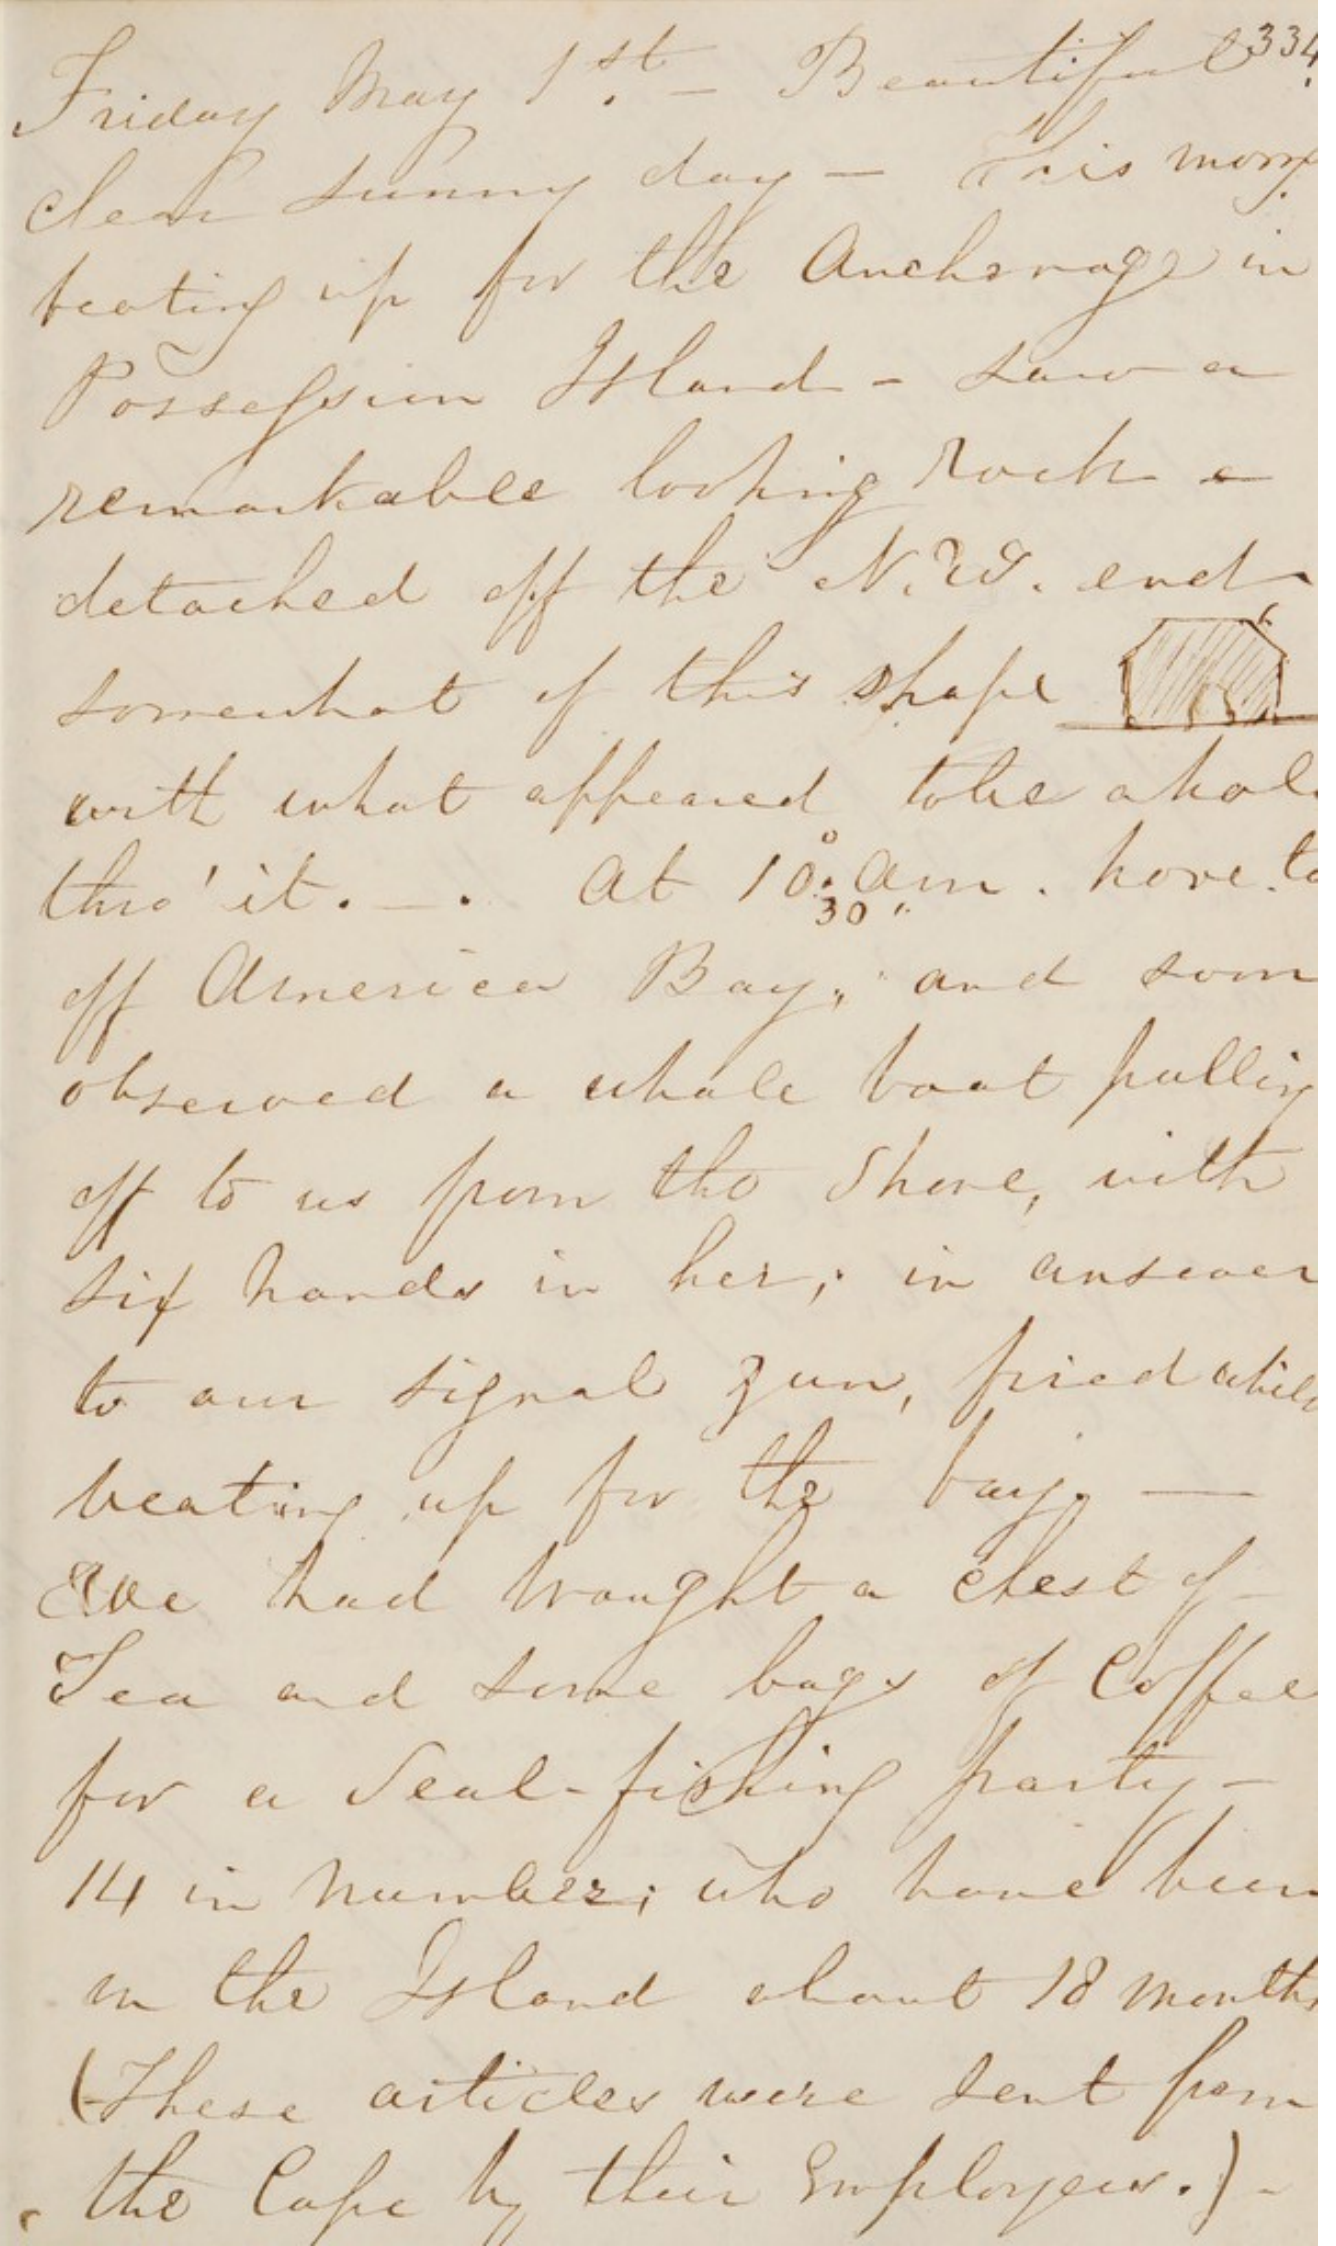 334
Friday May 1st. - Beautiful
clear sunny day - This morng
beating up for the Anchorage in
Possession Island - saw a
remarkable looking rock -
detached off the N.W. end
somewhat of this shape
with what appeared to be a hole
thro' it. - . At 10.30 am. hove to
off America Bay; and soon
observed a whale boat pulling
off to us from the Shore, with
six hands in her; in answer
to our signal gun, fired while
beating up for the bay. -
We had brought a chest of
Tea and some bags of Coffee
for a Seal-fishing party -
14 in number; who have been
on the Island about 18 months
(These articles were sent from
the Cape by their Employers.) -